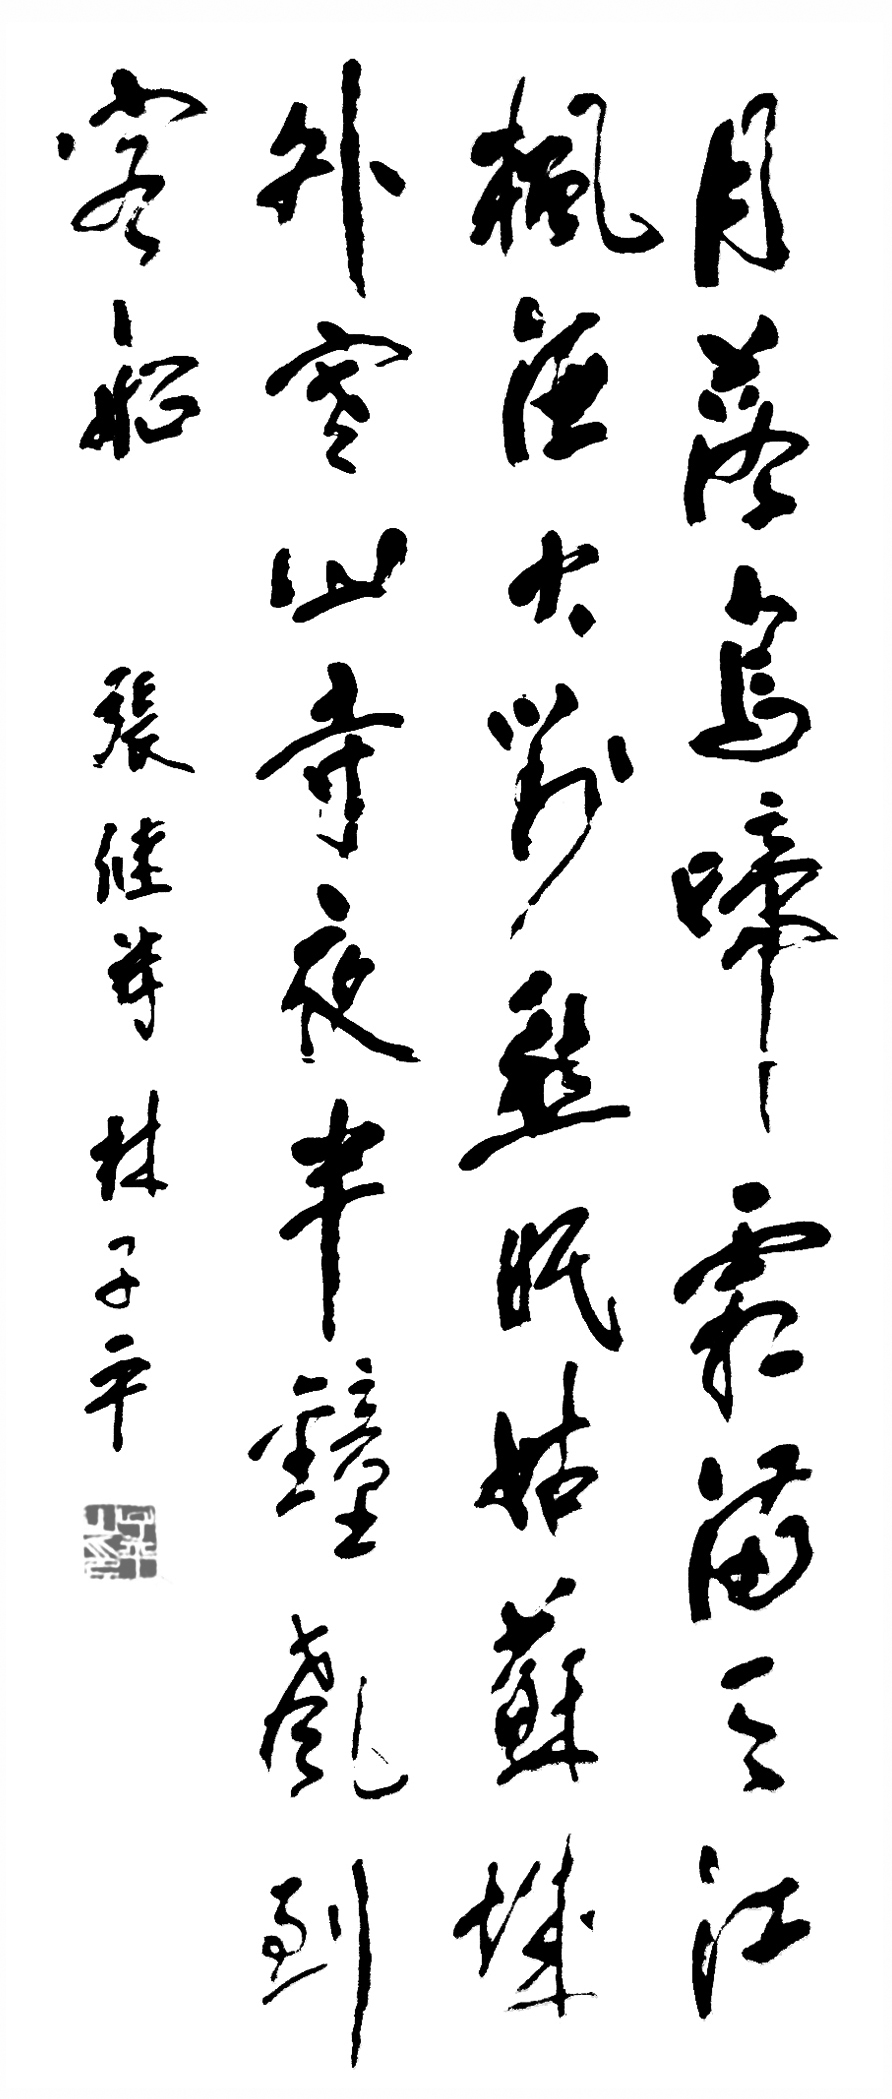 月落烏啼霜滿天江
楓漁火對愁眠姑蘇城
外寒山寺夜半鐘聲到
客船
張 林子平